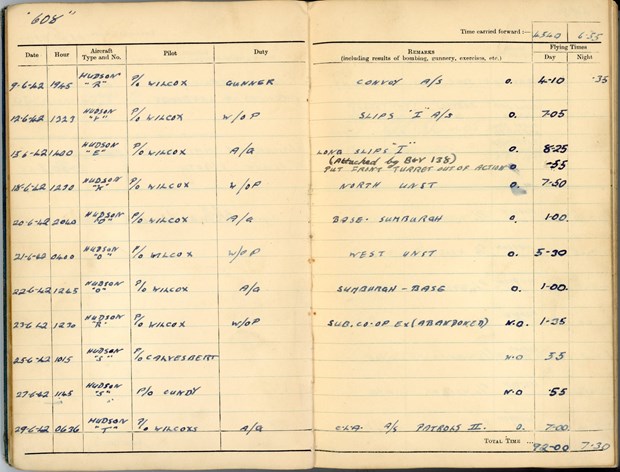 "608"
Time carried forward:— 6.35
Date Hour Aircraft Type and No. Pilot Duty Remarks (including results of bombing, gunnery, exercises, etc.) Flying Times Day Night
9-6-42 1945 HUDSON "R" P/O WILCOX GUNNER CONVOY A/S O. 4-10 .35
12-6-42 1323 HUDSON P/O WILCOX W/OP SLIPS "I" A/S O. 7.05
15-6-42 1400 HUDSON "E" P/O WILCOX A/G LONG SLIPS "I" O. 8.25
(Attacked by B&V 138)
PUT FRONT TURRET OUT OF ACTION O .55
18-6-42 1230 HUDSON "X" P/O WILCOX W/OP NORTH UNST O. 7-50
20-6-42 2040 HUDSON "O" P/O WILCOX A/G BASE-SUMBURGH O. 1.00.
21-6-42 0400 HUDSON "O" P/O WILCOX W/OP WEST UNST O. 5-30
22-6-42 1245 HUDSON "O" P/O WILCOX A/G SUMBURGH-BASE O. 1-00.
23-6-42 1230 HUDSON "R" P/O WILCOX W/OP SUB. CO-OP EX (ABANDONED) N.O. 1-35
25-6-42 1015 HUDSON "S" P/O CALVESBERT N.O 55
27-6-42 1145 HUDSON "S" P/O CUNDY N.O .55
29-6-42 0636 HUDSON "T" P/O WILCOXS A/G C.L.A. A/S PATROLS II. O. 7.00
Total Time ... 92-00 7-30